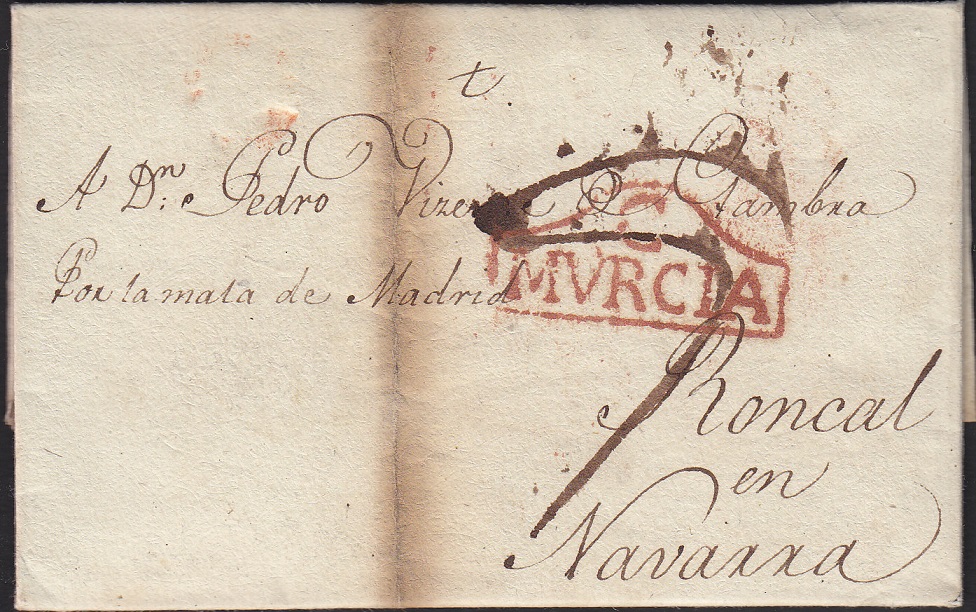 t.
A Dn. Pedro Vizente Gambra
Por la mala de Madrid
C
MVRCIA
7
Roncal
en
Navarra